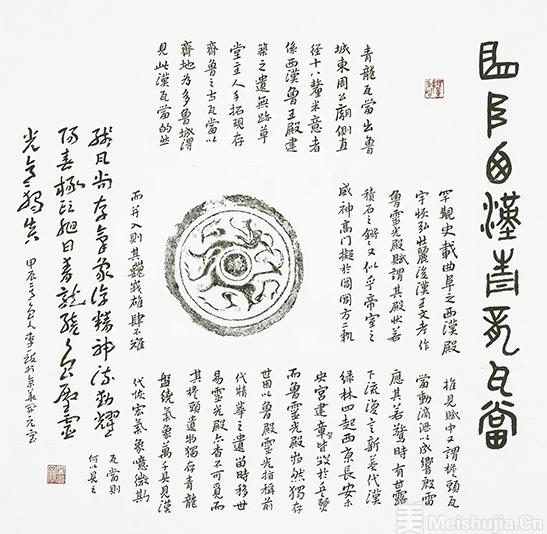 曲阜西漢青龍瓦當
青龍瓦當出魯
城東周公廟側直
徑十八釐米意者
係西漢魯王殿建
築之遺無路草
堂主人手拓現存
齊魯之古瓦當以
齊地為多魯城得
見此漢瓦當的些
罕觀史載曲阜之西漢殿
宇恢弘壯麗後漢王文考作
魯靈光殿賦謂其殿狀若
積石之鏘鏘又似乎帝室之
威神高門擬於閶闔方二軌
而并入則其巍峨雄肆不難
推見賦中又謂椽頭瓦
當動滴溜以成響殿雷
應其若驚時有甘露
下流漫之新莽代漢
綠林四起西京長安未
央宮建章皆毀於兵燹
而魯靈光殿巋然獨存
世因以魯殿靈光指稱前
代精華之遺留時移世
易靈光殿亦杳不可覓而
其椽頭遺物獨存青龍
盤繞氣象萬千具見漢
代恢宏氣象噫微斯
瓦當則
何以見之
尚存氣象浮精神流動耀
甲辰
Meishujia.Cn